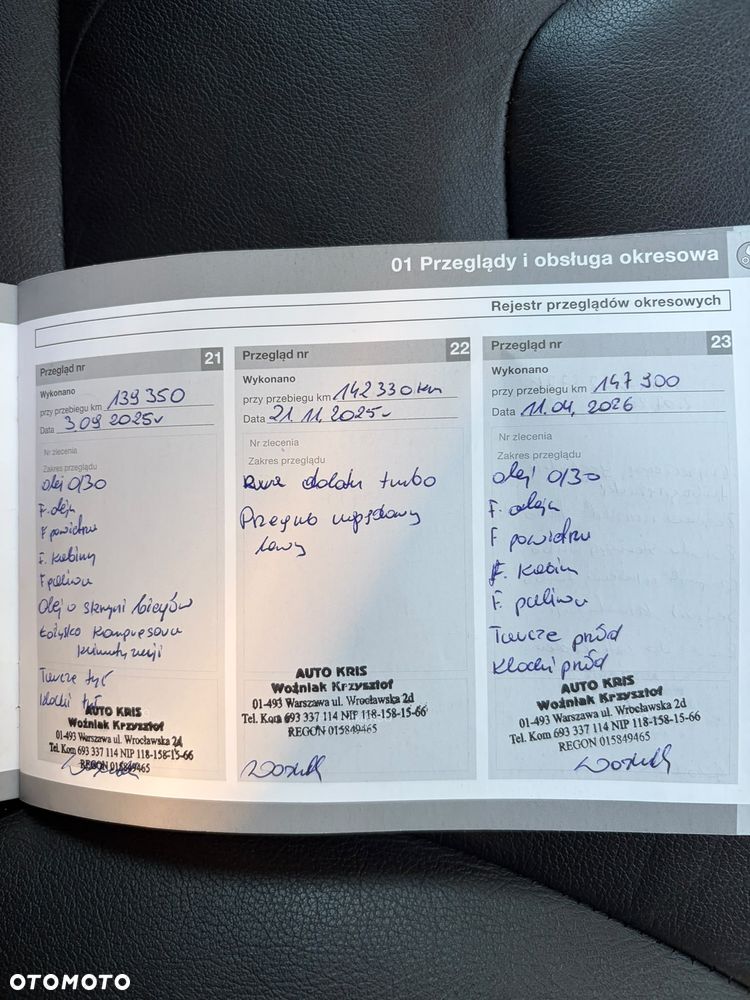 01 Przeglądy i obsługa okresowa
Rejestr przeglądów okresowych
Przegląd nr 21
Wykonano
przy przebiegu km 139 350
Data 3.09 2025r
Nr zlecenia
Zakres przeglądu
olej 0/30
F. oleju
F powietrza
F. kabiny
F paliwa
Olej w skrzyni biegów
Łożysko kompresora
klimatyzacji
Tarcze tył
klocki tył
AUTO KRIS
Woźniak Krzysztof
01-493 Warszawa ul. Wrocławska 2d
Tel. Kom 693 337 114 NIP 118-158-15-66
REGON 015849465
Przegląd nr 22
Wykonano
przy przebiegu km 142 330 km
Data 21.11.2025r
Nr zlecenia
Zakres przeglądu
dolotu turbo
Przegub
lewy
AUTO KRIS
Woźniak Krzysztof
01-493 Warszawa ul. Wrocławska 2d
Tel. Kom 693 337 114 NIP 118-158-15-66
REGON 015849465
Przegląd nr 23
Wykonano
przy przebiegu km 147 900
Data 11.04.2026
Nr zlecenia
Zakres przeglądu
olej 0/30
F. oleju
F powietrza
F. kabiny
F. paliwa
Tarcze przód
Klocki przód
AUTO KRIS
Woźniak Krzysztof
01-493 Warszawa ul. Wrocławska 2d
Tel. Kom 693 337 114 NIP 118-158-15-66
REGON 015849465
OTOMOTO